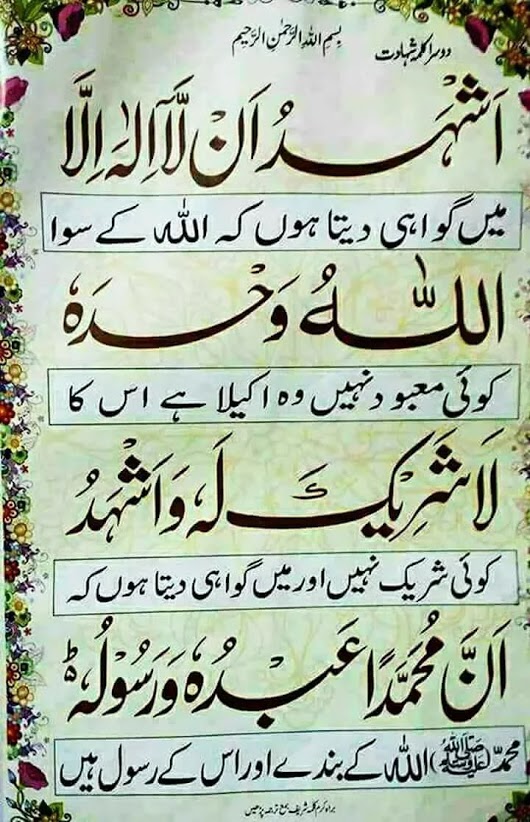 دوسرا کلمہ شہادت
بِسْمِ اللهِ الرَّحْمٰنِ الرَّحِيْمِ
اَشْهَدُ اَنْ لَّآ اِلٰهَ اِلَّا
میں گواہی دیتا ہوں کہ اللہ کے سوا
اللّٰهُ وَحْدَهٗ
کوئی معبود نہیں وہ اکیلا ہے اس کا
لَا شَرِيْكَ لَهٗ وَاَشْهَدُ
کوئی شریک نہیں اور میں گواہی دیتا ہوں کہ
اَنَّ مُحَمَّدًا عَبْدُهٗ وَرَسُوْلُهٗ ؕ
محمدؐ (صلی اللہ علیہ وسلم) اللہ کے بندے اور اس کے رسول ہیں
براہ کرم کلمہ شریف بمع ترجمہ پڑھیں